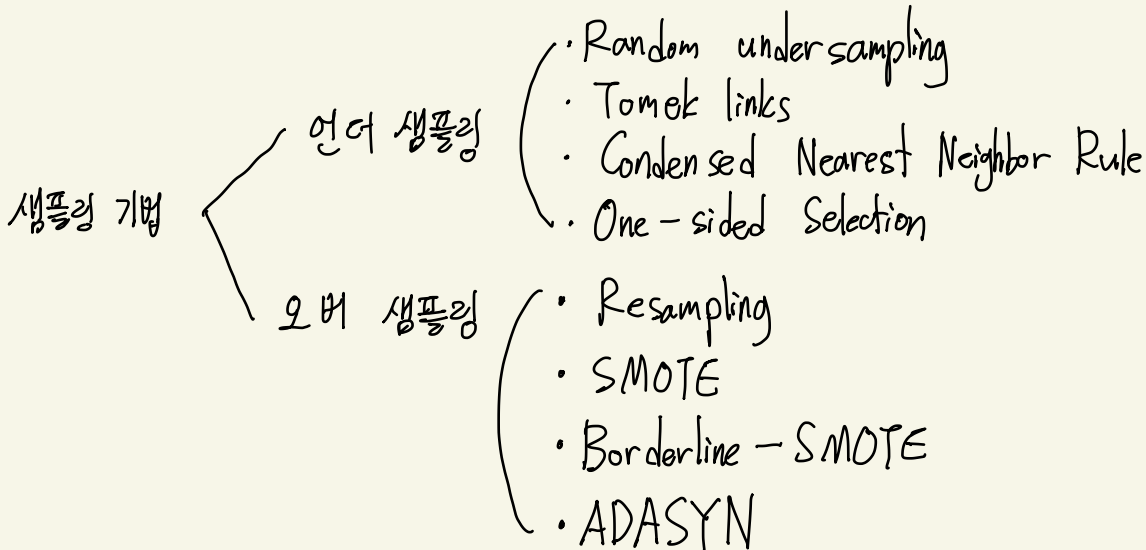 샘플링 기법
언더 샘플링
· Random undersampling
· Tomek links
· Condensed Nearest Neighbor Rule
· One-sided Selection
오버 샘플링
· Resampling
· SMOTE
· Borderline-SMOTE
· ADASYN